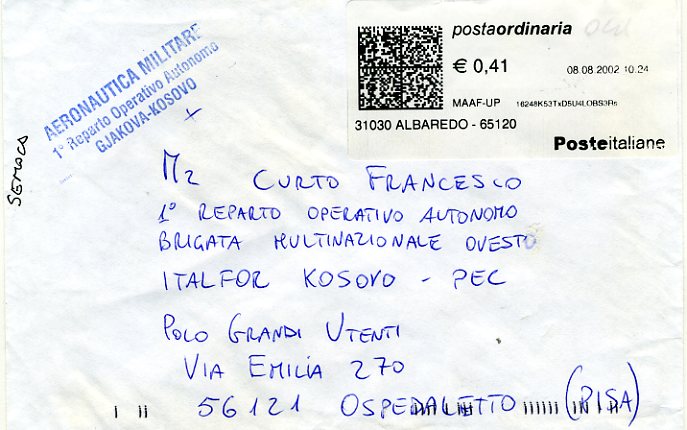 AERONAUTICA MILITARE
1° Reparto Operativo Autonomo
GJAKOVA-KOSOVO
postaordinaria
€ 0,41
08.08.2002 10.24
MAAF-UP 16248K53TxD5U4LOBS3Rs
31030 ALBAREDO - 65120
Posteitaliane
M2 CURTO FRANCESCO
1° REPARTO OPERATIVO AUTONOMO
BRIGATA MULTINAZIONALE OVEST
ITALFOR KOSOVO - PEC
POLO GRANDI UTENTI
VIA EMILIA 270
56121 OSPEDALETTO (PISA)